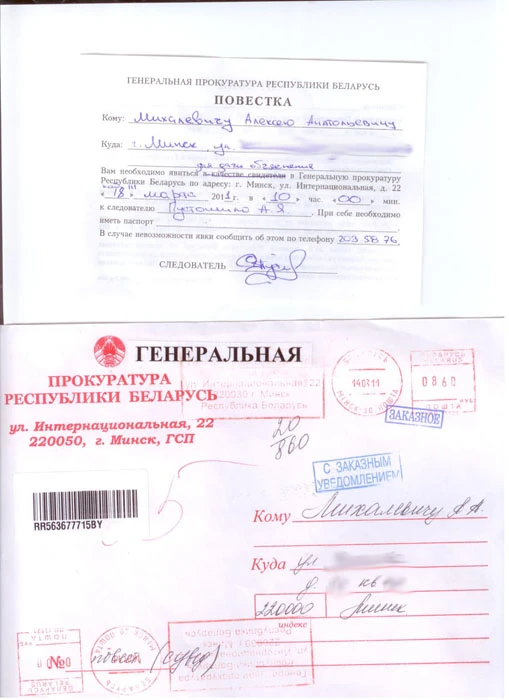 ГЕНЕРАЛЬНАЯ ПРОКУРАТУРА РЕСПУБЛИКИ БЕЛАРУСЬ
ПОВЕСТКА
Кому: Михалевичу Алексею Анатольевичу
Куда: г. Минск, ул.
для дачи объяснения
Вам необходимо явиться в качестве свидетеля в Генеральную прокуратуру
Республики Беларусь по адресу: г. Минск, ул. Интернациональная, д. 22
«18» марта 2011 г. в «10» час. «00» мин.
к следователю А.Я. При себе необходимо
иметь паспорт
В случае невозможности явки сообщить об этом по телефону 203 58 76
СЛЕДОВАТЕЛЬ
ГЕНЕРАЛЬНАЯ
ПРОКУРАТУРА
РЕСПУБЛИКИ БЕЛАРУСЬ
ул. Интернациональная, 22
220050, г. Минск, ГСП
ул. Интернациональная 22
220030 г. Минск
Республика Беларусь
БЕЛАРУСЬ
140311
МИНСК-30 ПОШТА
БЕЛАРУСЬ
0860
ПОШТА
ЗАКАЗНОЕ
20
860
С ЗАКАЗНЫМ
УВЕДОМЛЕНИЕМ
RR563677715BY
5
Кому Михалевичу А.А.
Куда ул
д. кв
220000 Минск
индекс
ПОШТА
БЕЛАРУСЬ